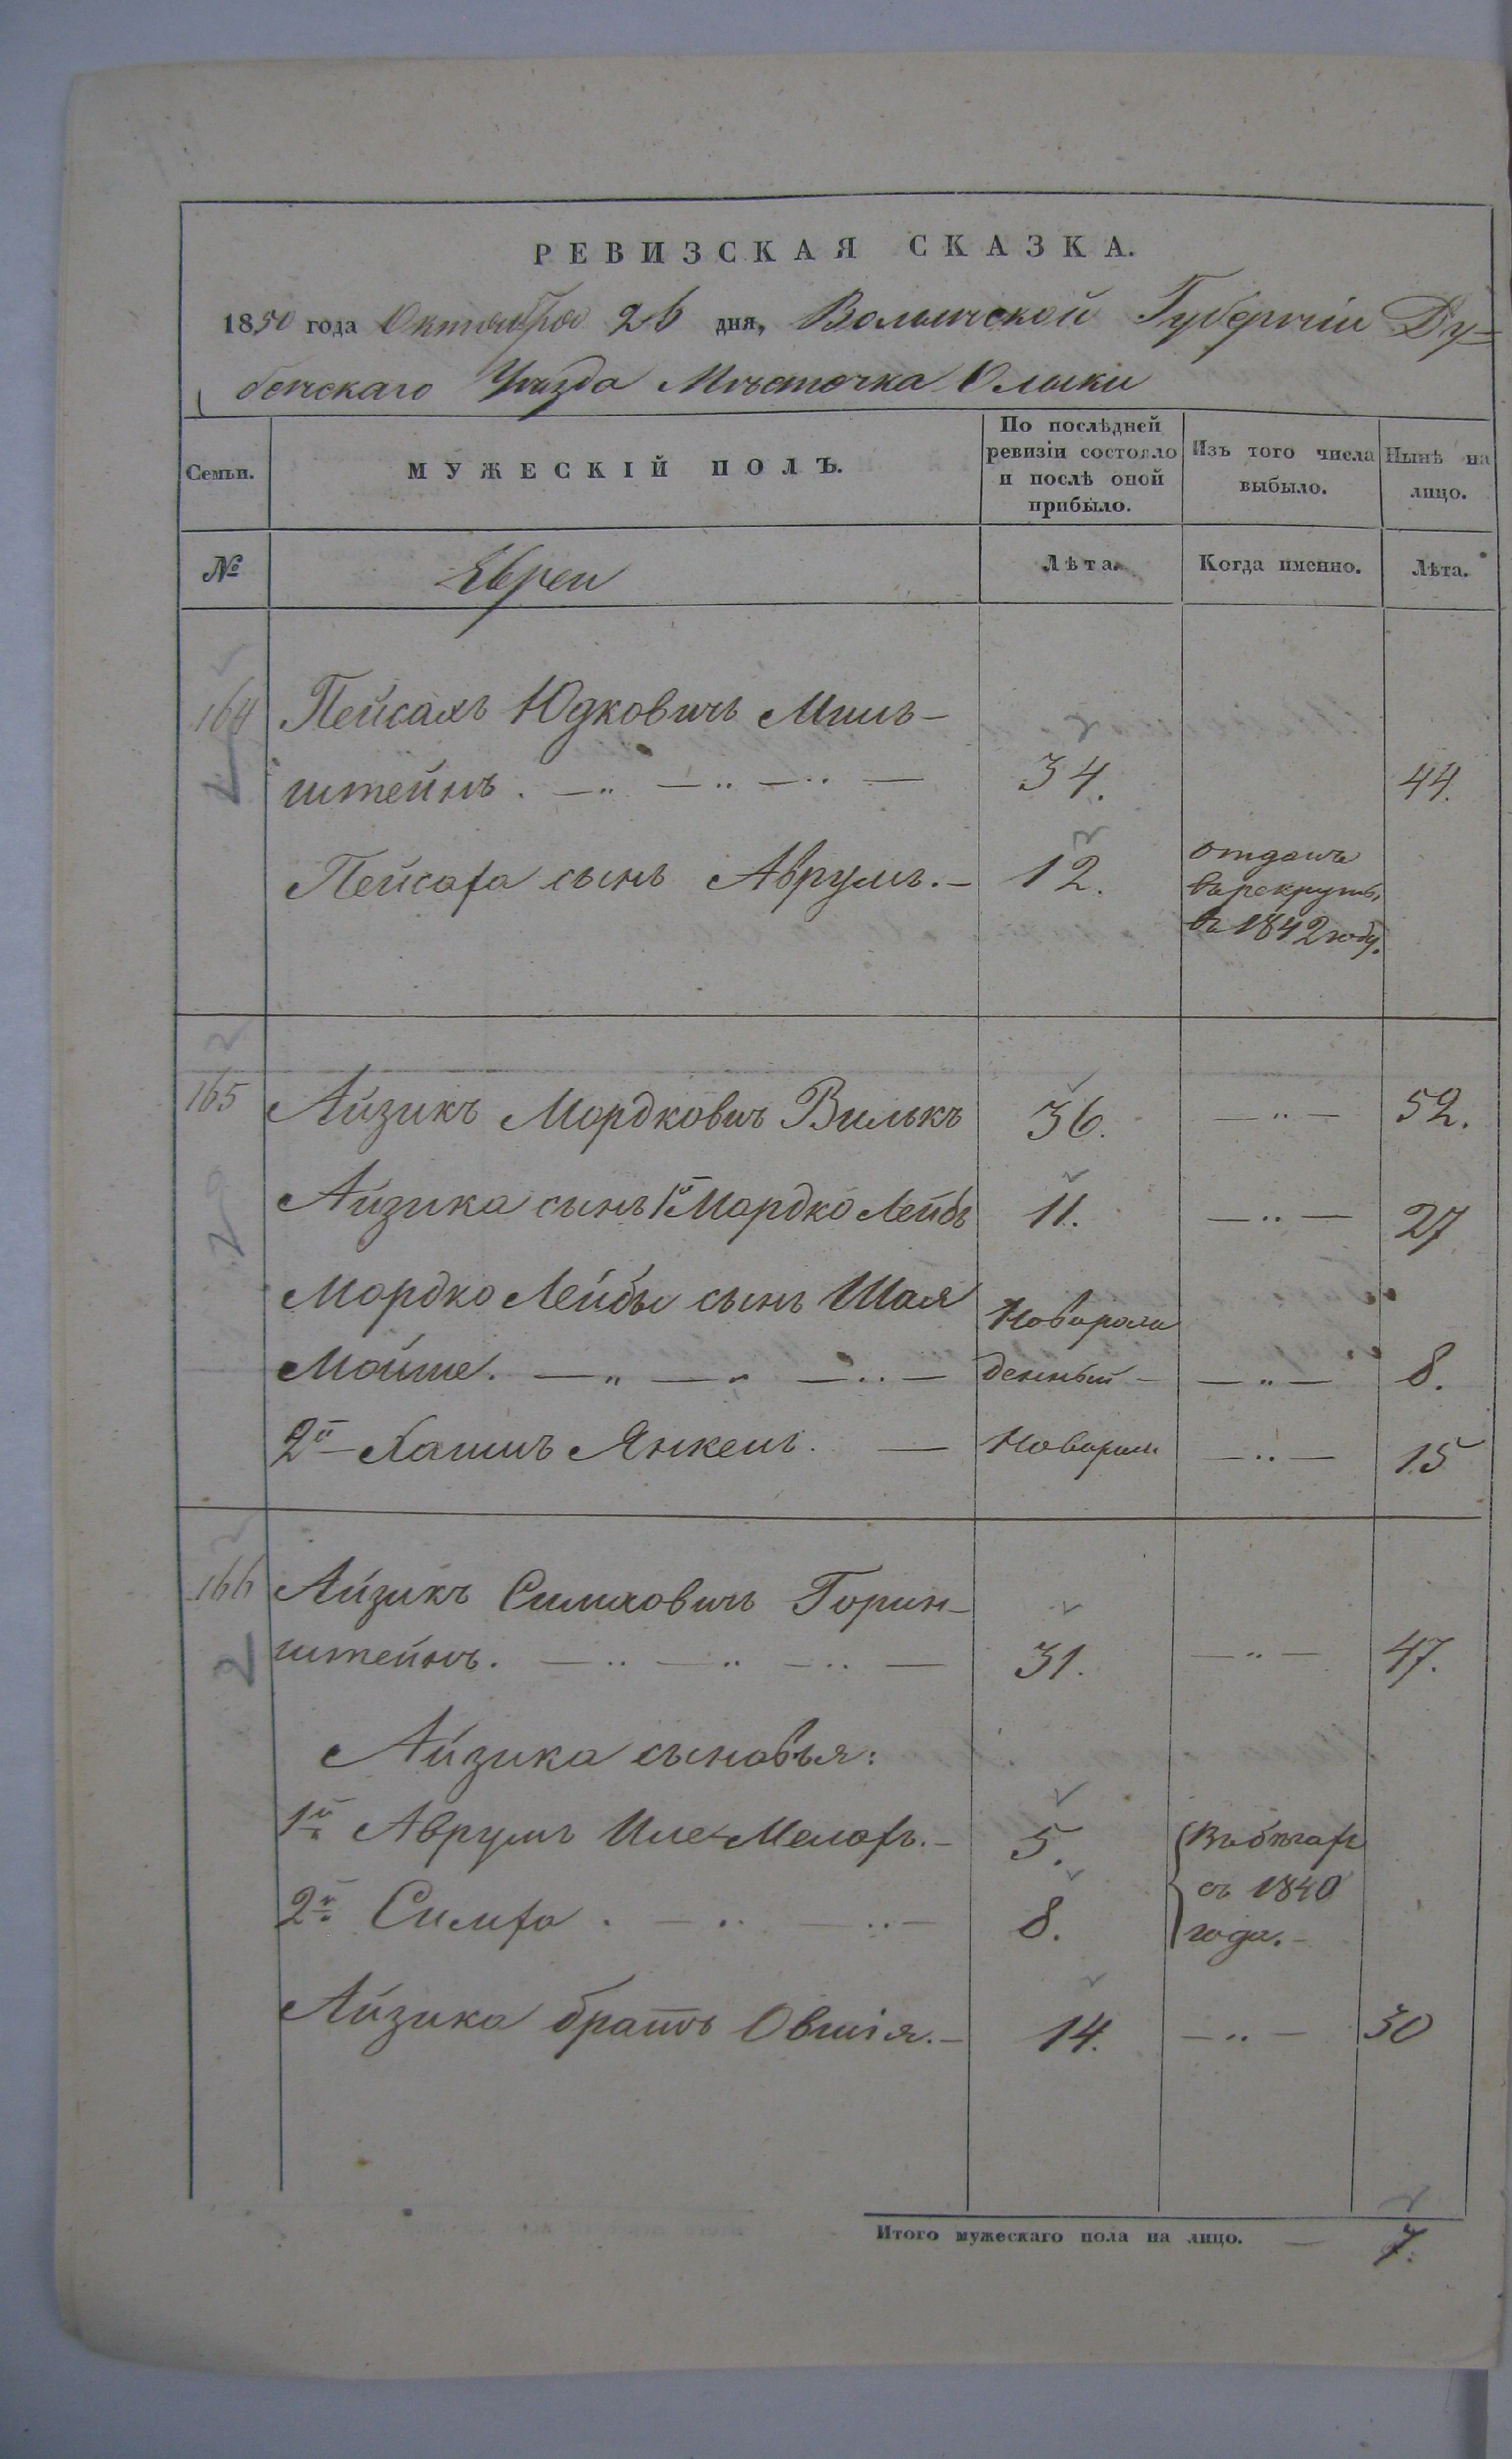 РЕВИЗСКАЯ СКАЗКА.
1850 года Октября 26 дня, Волынской Губерніи Ду-
бенскаго Уѣзда Мѣстечка Олыки
Семьи.
МУЖЕСКІЙ ПОЛЪ.
По послѣдней
ревизіи состояло
и послѣ оной
прибыло.
Изъ того числа
выбыло.
Нынѣ на
лицо.
№
Евреи
Лѣта.
Когда именно.
Лѣта.
164 Пейсахъ Юдковичъ Миль-
штейнъ. 34. 44.
Пейсаха сынъ Аврумъ. 12. отданъ
въ рекруты,
въ 1842 году.
165 Айзикъ Мордковичъ Вилькъ 36. 52.
Айзика сынъ 1й Мордко Лейбъ 11. 27
2
Мордко Лейбы сынъ Шая Новорож
Мойше. денный 8.
2й Хаимъ Янкель. Новорож 15
166 Айзикъ Симховичъ Горин-
штейнъ. 31. 47.
2
Айзика сыновья:
1й Аврумъ Меляхъ. 5. Въ бѣгахъ
2й Симха. 8. съ 1840
года.
Айзика братъ Овшія. 14. 30
Итого мужескаго пола на лицо. 7.